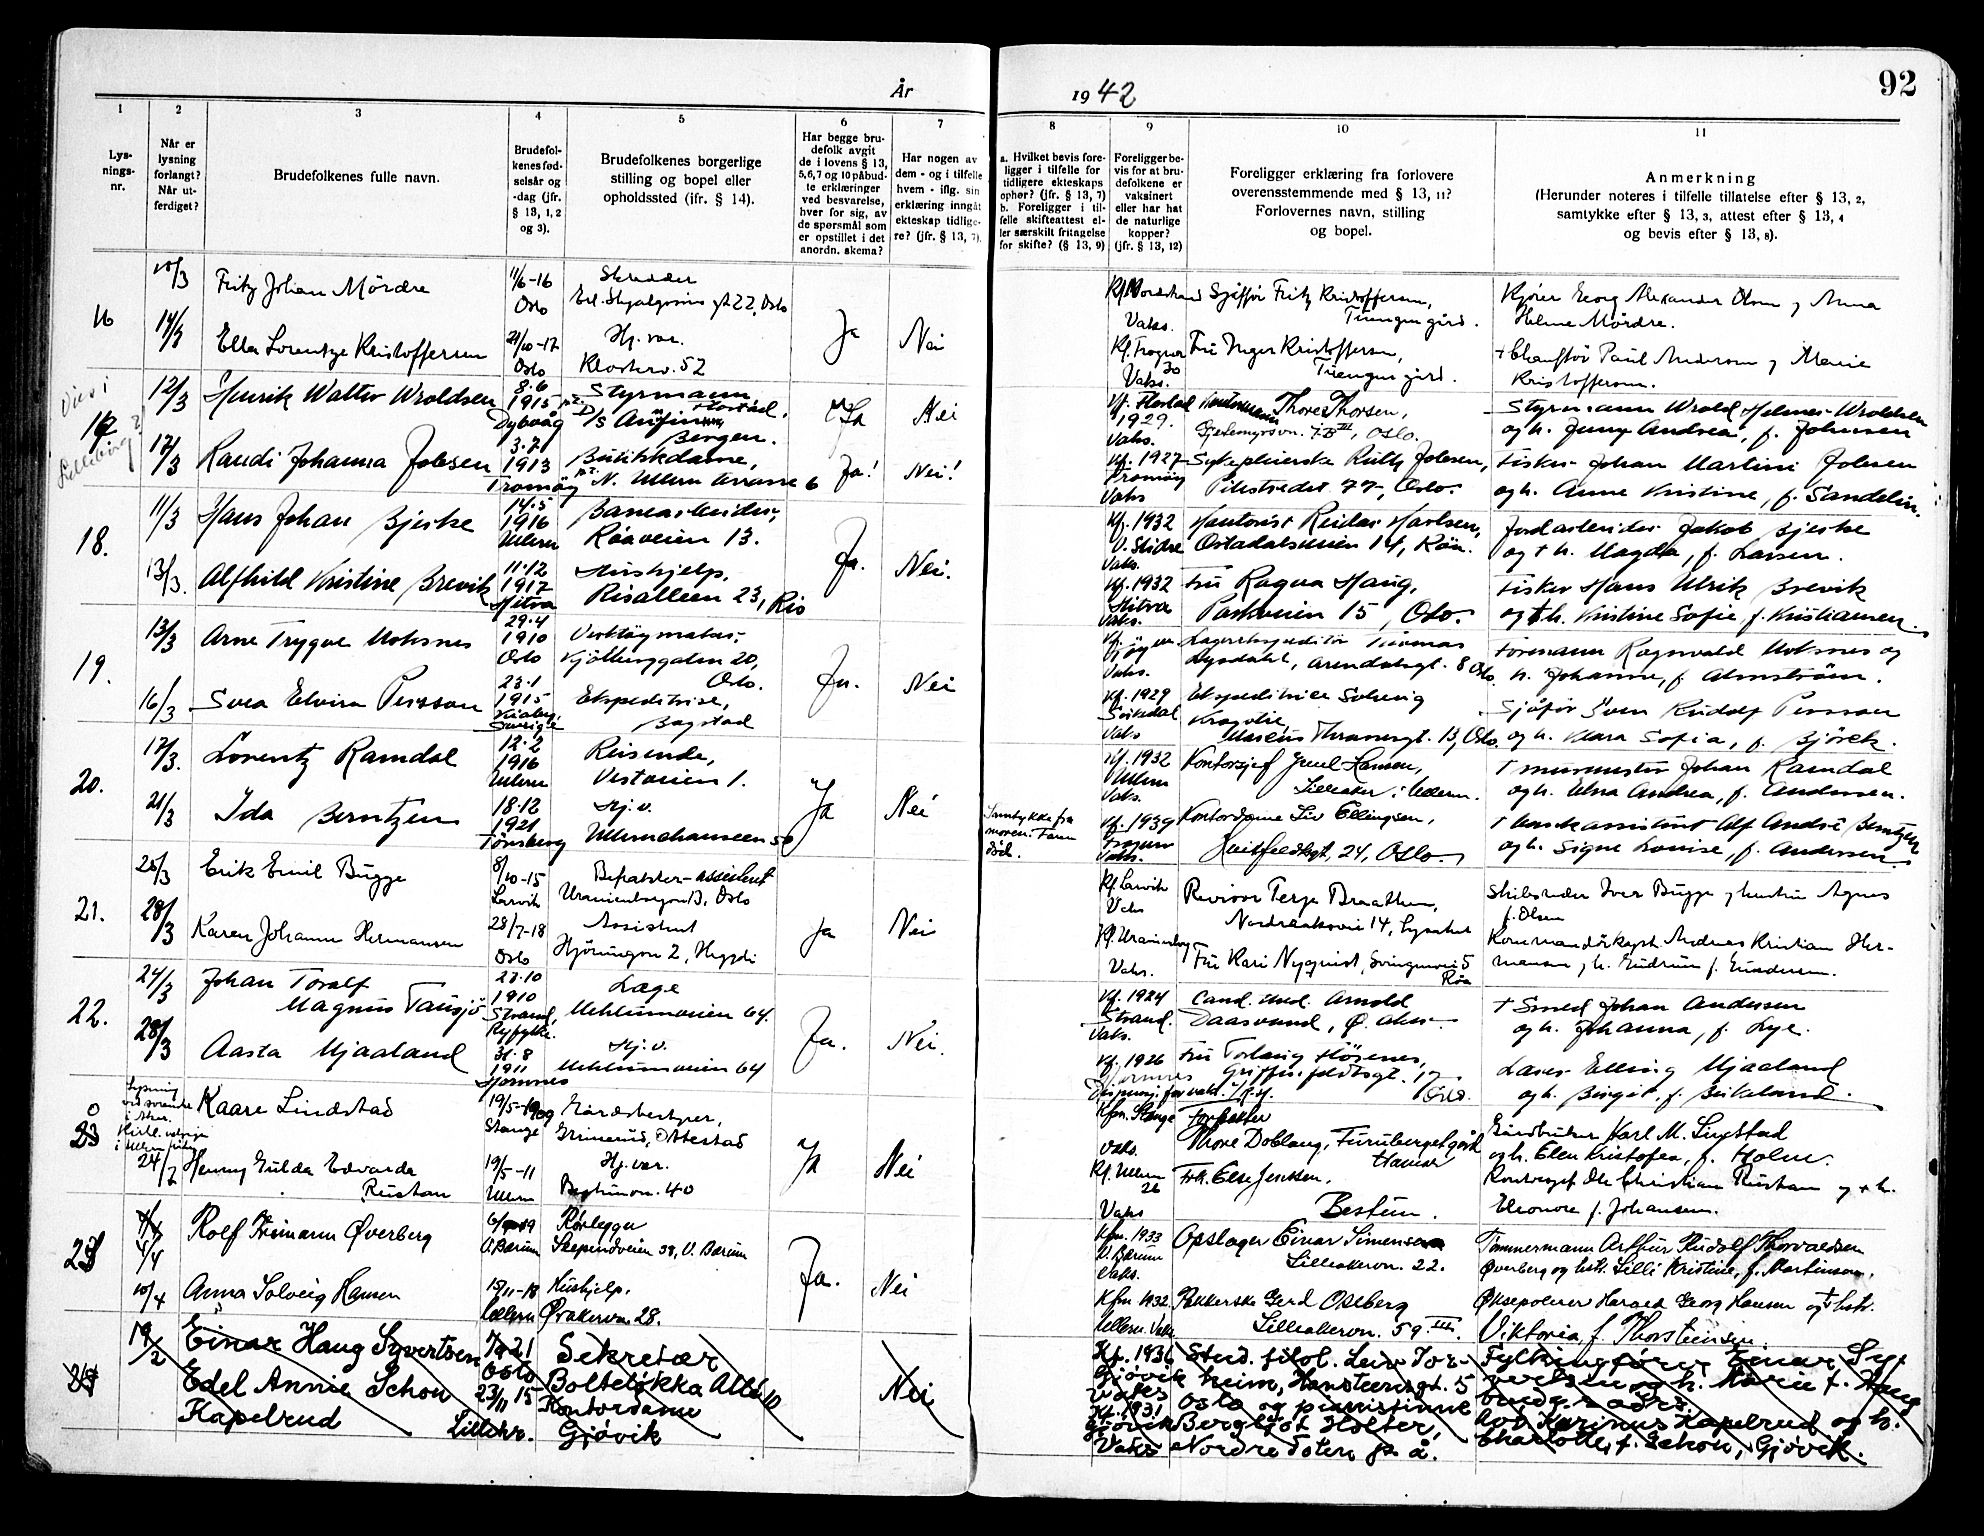 År 1942
92
1
Lysningsnr.
2
Når er lysning forlangt? Når utferdiget?
3
Brudefolkenes fulle navn.
4
Brudefolkenes fødselsår og -dag (jfr. § 13, 1, 2 og 3).
5
Brudefolkenes borgerlige stilling og bopel eller opholdssted (ifr. § 14).
6
Har begge brudefolk avgit de i lovens § 13, 5, 6, 7 og 10 påbudte erklæringer ved besvarelse, hver for sig, av de spørsmål som er opstillet i det anordn. skema?
7
Har nogen av dem - og i tilfelle hvem - iflg. sin erklæring inngåt ekteskap tidligere? (jfr. § 13, 7).
8
a. Hvilket bevis foreligger i tilfelle for tidligere ekteskaps ophør? (jfr. § 13, 7)
b. Foreligger i tilfelle skifteattest eller særskilt fritagelse for skifte? (§ 13, 9)
9
Foreligger bevis for at brudefolkene er vaksinert eller har hat de naturlige kopper? (jfr. § 13, 12)
10
Foreligger erklæring fra forlovere overensstemmende med § 13, 11? Forlovernes navn, stilling og bopel.
11
Anmerkning
(Herunder noteres i tilfelle tillatelse efter § 13, 2, samtykke efter § 13, 3, attest efter § 13, 4 og bevis efter § 13, 8).
16
10/3
Fritz Johan Mördre
11/6-16
Oslo
Skredder
Erl. Skjalgsøns gt 22, Oslo
Ja
Nei
Vaks.
Sjåffør Fritz Kristoffersen,
Tuengen gård.
Kjører Georg Alexander Olsen og Anna
Helene Mördre.
Ella Lorentze Kristoffersen
21/10-17
Oslo
Hj. vær.
Klosterv. 52
Kf. Frogner
30
Vaks.
Fru Inger Kristoffersen,
Tuengen gård.
+ Chauffør Paul Anderson og Marie
Kristoffersen.
12/3
Henrik Walter Wroldsen
8.6
1915
Dybvåg
Styrmann
Bergen.
Ja
Nei
1929.
Vaks.
Thore Thorsen,
Oslo.
Styrmann Wrold Helmer Wroldsen
og h. Jenny Andrea, f. Johnsen
17/3
Randi Johanna Jolesen
3.7
1913
Tromøy
Butikkdame,
N. Ullern terrasse 6
Ja!
Nei!
Kf. 1927
Tromøy
Vaks
Sykepleierske Ruth Jolesen,
Pilestredet 77, Oslo.
Fisker Johan Martin Jolesen
og h. Anne Kristine, f. Sandelin.
18.
11/3
Hans Johan Bjerke
14.5
1916
Ullern
Banearbeider,
Röaveien 13.
Ja.
Nei.
Kf. 1932
V. Slidre
Vaks.
Kontorist Reidar Karlsen,
Ostadalsveien 14, Röa.
Jordarbeider Jakob Bjerke
og + h. Magda, f. Larsen.
13/3.
Alfhild Kristine Brevik
11.12
1917
Hitra
Hushjelp,
Risalleen 23, Ris
Kf. 1932
Hitra
Vaks.
Fru Ragna Haug,
Parkveien 15, Oslo.
Fisker Hans Ulrik Brevik
og + h. Kristine Sofie, f. Kristiansen.
19.
13/3
Arne Trygve Moksnes
29.4
1910
Oslo
Verktøymaker,
Kjölberggaten 20,
Oslo.
Ja.
Nei
Vaks.
Lagerekspeditör Thomas
Lysdahl, Arendalsgt. 8 Oslo.
Formann Ragnvald Moksnes og
h. Johanne, f. Almström.
16/3
Svea Elvira Persson
23.1
1915
Sverige
Ekspeditrise,
Bogstad
Kf. 1929
Vaks
Ekspeditrise Solveig
Marcus Thranesgt. 13, Oslo.
Sjåför Sven Rudolf Persson
og h. Klara Sofia, f. Björck.
20.
17/3.
Lorentz Ramdal
12.2
1916
Ullern
Reisende,
Vestveien 1.
Ja
Nei
Kf. 1932
Ullern
Vaks.
Kontorsjef Juul Hansen,
Lilleaker i Ullern.
+ murmester Johan Ramdal
og h. Elna Andrea, f. Andersen.
21/3
Ida Berntzen
18.12
1921
Tönsberg
Hj. v.
Ullernchausseen 50
Samtykke fra
moren. Faren
död.
Kf. 1939
Frogner
Vaks.
Kontordame Liv Ellingsen,
Huitfeldtsgt. 24, Oslo.
+ bankassistent Alf André Berntzen
og h. Signe Louise, f. Andersen.
21.
25/3
Erik Emil Bugge
8/10-15
Larvik
Befrakter-assistent
Oslo
Ja
Nei
Kf. Larvik
Vaks
Revisor Terje Braathen,
Nordraaksvei 14, Lysaker
Skibsreder Iver Bugge og hustru Agnes
f. Olsen
28/3
Karen Johanne Hermansen
28/7-18
Oslo
Assistent
Hjörungvn 2, Heggeli
Kf. Uranienborg
Vaks.
Fru Kari Nyquist, Svingenvei 5
Röa
Kommandörkapt. Andreas Kristian Her-
mansen og h. Gudrun f. Gundersen.
22.
24/3
Johan Toralf
Magnus Tausjö
23.10
1910
Strand,
Ryfylke.
Læge
Mehlumveien 64.
Ja.
Nei.
Kf. 1924
Strand.
Vaks.
Cand. med. Arnold
Daasvand, Ö. Aker.
+ Smed Johan Andersen
og h. Johanna, f. Lye.
28/3
Aasta Mjaaland
31.8
1911
Hj. v.
Mehlumveien 64
Kf. 1926
Oslo.
Lærer Elling Mjaaland
og h. Birgit, f. Birkeland.
23
Kaare Lindstad
19/5-1909
Stange
Gårdsbestyrer,
Grimerud, Ottestad
Ja
Nei
Kfm. Stange
Vaks.
Forpakter
Thore Doblaug, Furuberget gård
Hamar
Gårdbruker Karl M. Lindstad
og h. Elen Kristofea, f. Holen.
24/2
Henny Gulda Edvarda
Rustan
19/5-11
Ullern
Hj. vær.
Bestumvn. 40
Kf. Ullern
26
Vaks
Frk. Else Jenssen.
Bestum.
Kontorsjef Ole Christian Rustan og + h.
Eleonore f. Johansen.
4/4
Rolf Heimann Øverberg
V. Bærum
Rørlegger
Skepundveien 38, V. Bærum
Ja.
Nei
Kfm. 1933
V. Bærum
Vaks.
Opslager Einar Simensen
Lilleakervn. 22.
Tømmermann Arthur Rudolf Thorvaldsen
Øverberg og hstr. Lilli Kristine, f. Martinsen.
10/4
Anna Solveig Hansen
15/11-18
Ullern
Hushjelp.
Øvakervn. 28.
Kfm 1932
Ullern Vaks.
Pakkerske Gerd Oseberg
Lilleakervn. 59 III.
Øksepolerer Harald Georg Hansen og + hstr.
Viktoria, f. Thorsteinsen.
19/2
Einar Haug Syvertsen
Oslo
Sekretær
Bolteløkka Allé 10
Nei
Kf. 1936
Gjøvik
Vaks
Stud. filol. Leiv Tor-
heim, Hansteensgt. 5
Oslo og pianistinne
Fylkingfører Einar Sy-
vertsen og h. Marie f. Haug
Edel Annie Schou
Kapelrud
23/11 15
Lillehr.
Kontordame
Gjøvik
Kf. 1931
Gjøvik
Vaks
Bergljot Holter,
Nordre Toten p. å.
Adv. Karinus Kapelrud og h.
Charlotte, f. Schou, Gjøvik.